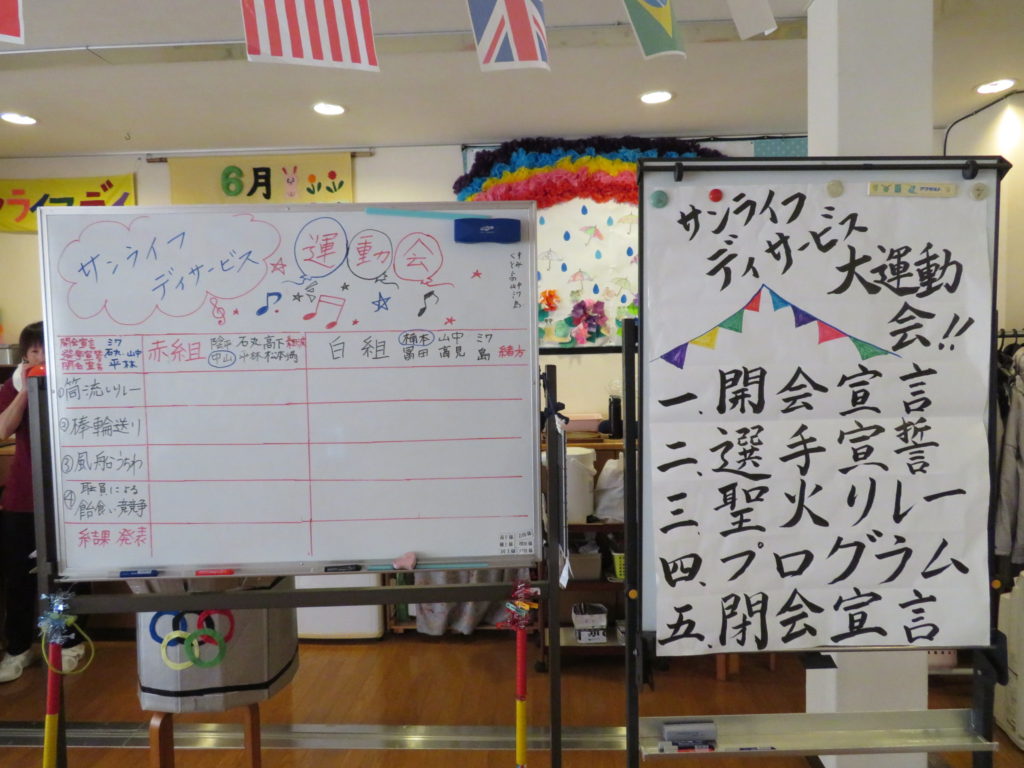 6月
サンライフ
ディサービス
運動会
開会宣言 ミワ
選手宣誓 石丸 山中
閉会宣言 平林
赤組
石丸 高下
中山 小林 松本
白組
楠本 山中 ミワ
冨田 島 緒方
①筒流しリレー
②棒輪送り
③風船うちわ
④職員による
飴食い競争
結果発表
サンライフ
ディサービス
大運動
会!!
一、開会宣言
二、選手宣誓
三、聖火リレー
四、プログラム
五、閉会宣言